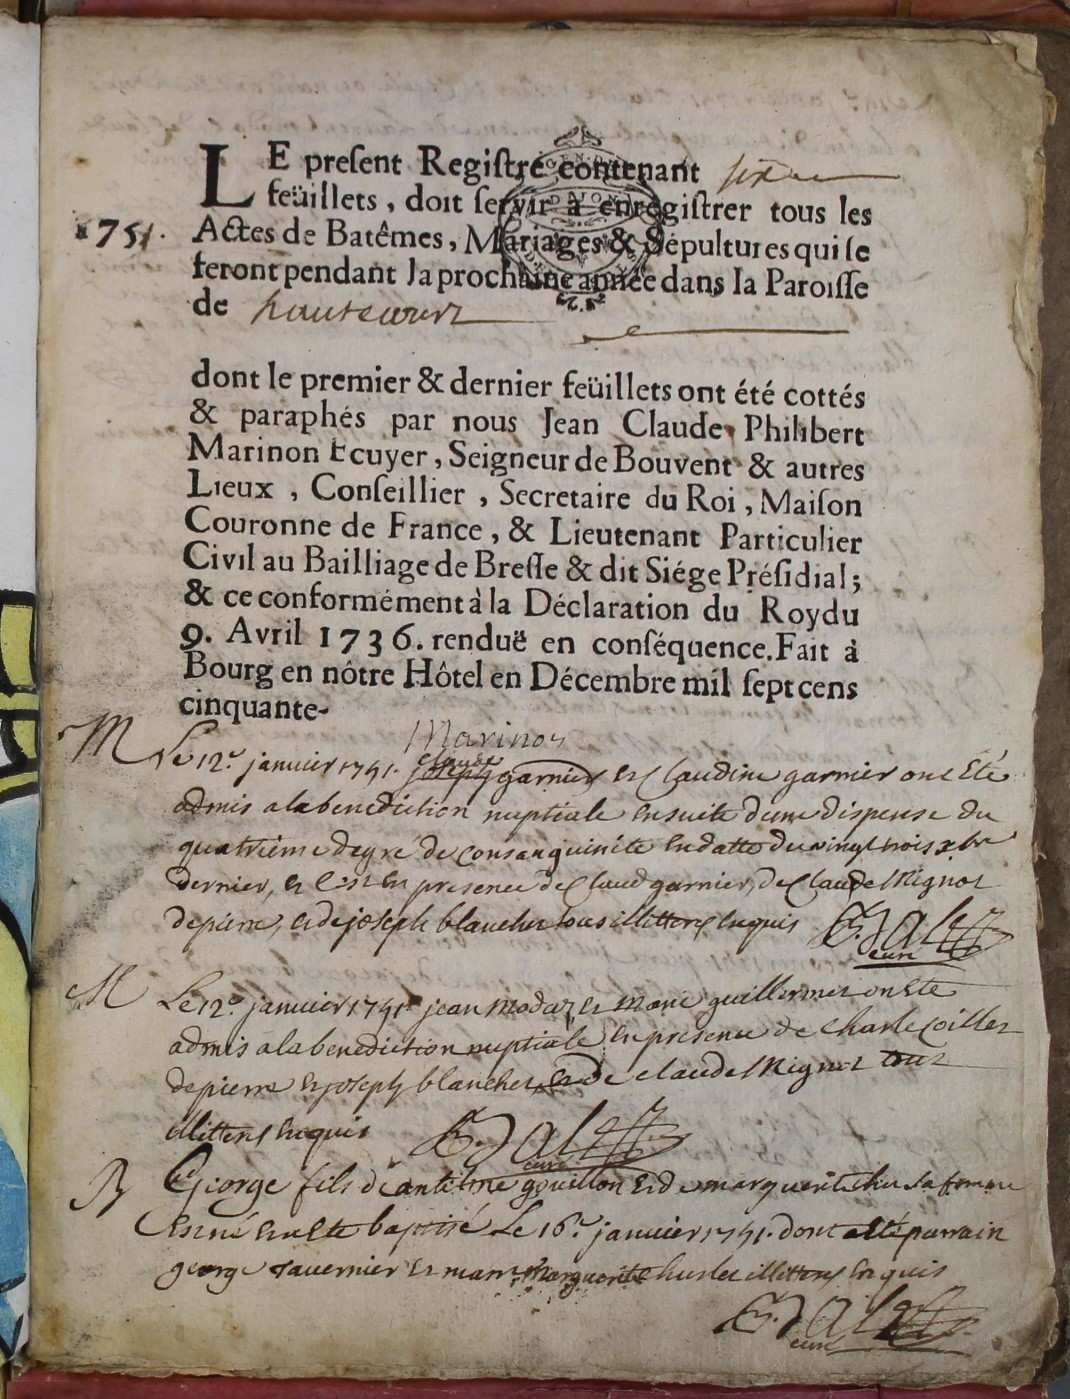 LE preſent Regiſtre contenant six
feüillets, doit ſervir à enregiſtrer tous les
1751. Actes de Batêmes, Mariages & Sépultures qui ſe
feront pendant la prochaine année dans la Paroiſſe
de hautecourt
dont le premier & dernier feüillets ont été cottés
& paraphés par nous Jean Claude Philibert
Marinon Ecuyer, Seigneur de Bouvent & autres
Lieux, Conſeillier, Secretaire du Roi, Maiſon
Couronne de France, & Lieutenant Particulier
Civil au Bailliage de Breſſe & dit Siége Préſidial;
& ce conformément à la Déclaration du Roy du
9. Avril 1736. renduë en conſéquence. Fait à
Bourg en nôtre Hôtel en Décembre mil ſept cens
cinquante-
Marinon
M Le 12e janvier 1751. claude joseph garnier et Claudine garnier ont Eté
admis a la benediction nuptiale ensuite d'une dispense du
quatrieme degré de consanguinite en datte du vingt trois xbre
dernier, et c'est en presence de Claud garnier, de Claude Mignot
de pierre, et de joseph blanchet tous illitterés enquis
curé
M Le 12e janvier 1751 jean Modaz et Marie guillermet on Eté
admis a la benediction nuptiale en presence de Charle Coillet
de pierre et joseph blanchet, et de claude Mignot tous
illitterés enquis
curé
B George fils d'antelme gouillon et de marguerite sa femme
est né et a Eté baptisé Le 16e janvier 1751. dont a Eté parrain
george tavernier et marr. Marguerite illitterés enquis
curé